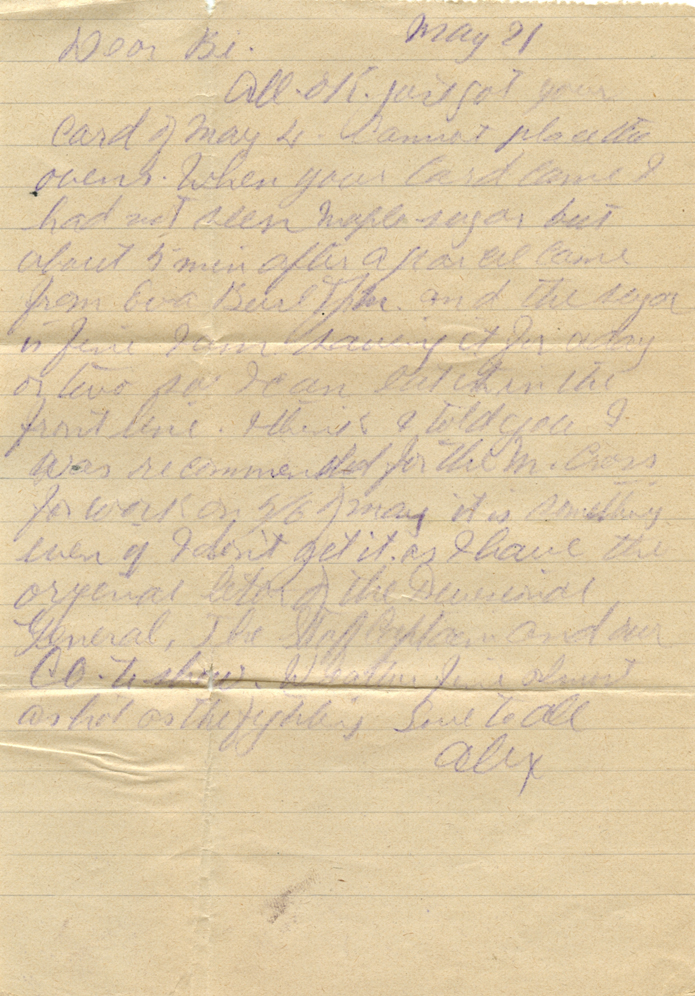 May 21
Dear Be.
All. OK. just got your
card of May 4. Cannot place the
ovens. When your Card came I
had not seen Maple-sugar but
about 5 min after a parcel came
from Eva and the sugar
is fine I am saving it for a day
or two so I can eat it in the
front line. I think I told you I
was recommended for the M. Cross
for work on 5/6 of may it is something
even if I don't get it. as I have the
of the Divisional
General, The Staff Captain and our
C.O. to show. Weather fine almost
as hot as the fighting Love to all
Alex